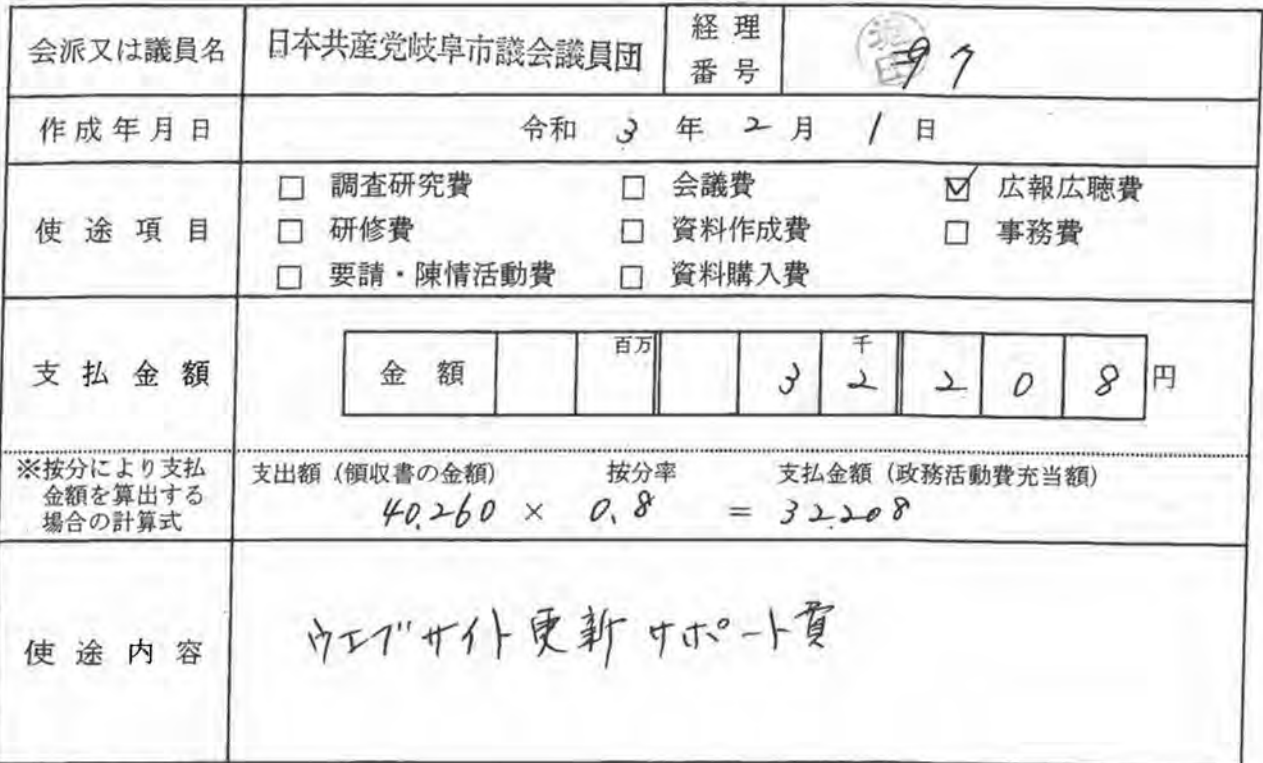 会派又は議員名 日本共産党岐阜市議会議員団 経理番号 97
作成年月日 令和 3 年 2 月 1 日
使途項目
□ 調査研究費 □ 会議費 ☑ 広報広聴費
□ 研修費 □ 資料作成費 □ 事務費
□ 要請・陳情活動費 □ 資料購入費
支払金額 金額 百万 千 3 2 2 0 8 円
※按分により支払
金額を算出する
場合の計算式
支出額（領収書の金額） 按分率 支払金額（政務活動費充当額）
40,260 × 0.8 = 32,208
使途内容 ウェブサイト更新サポート費